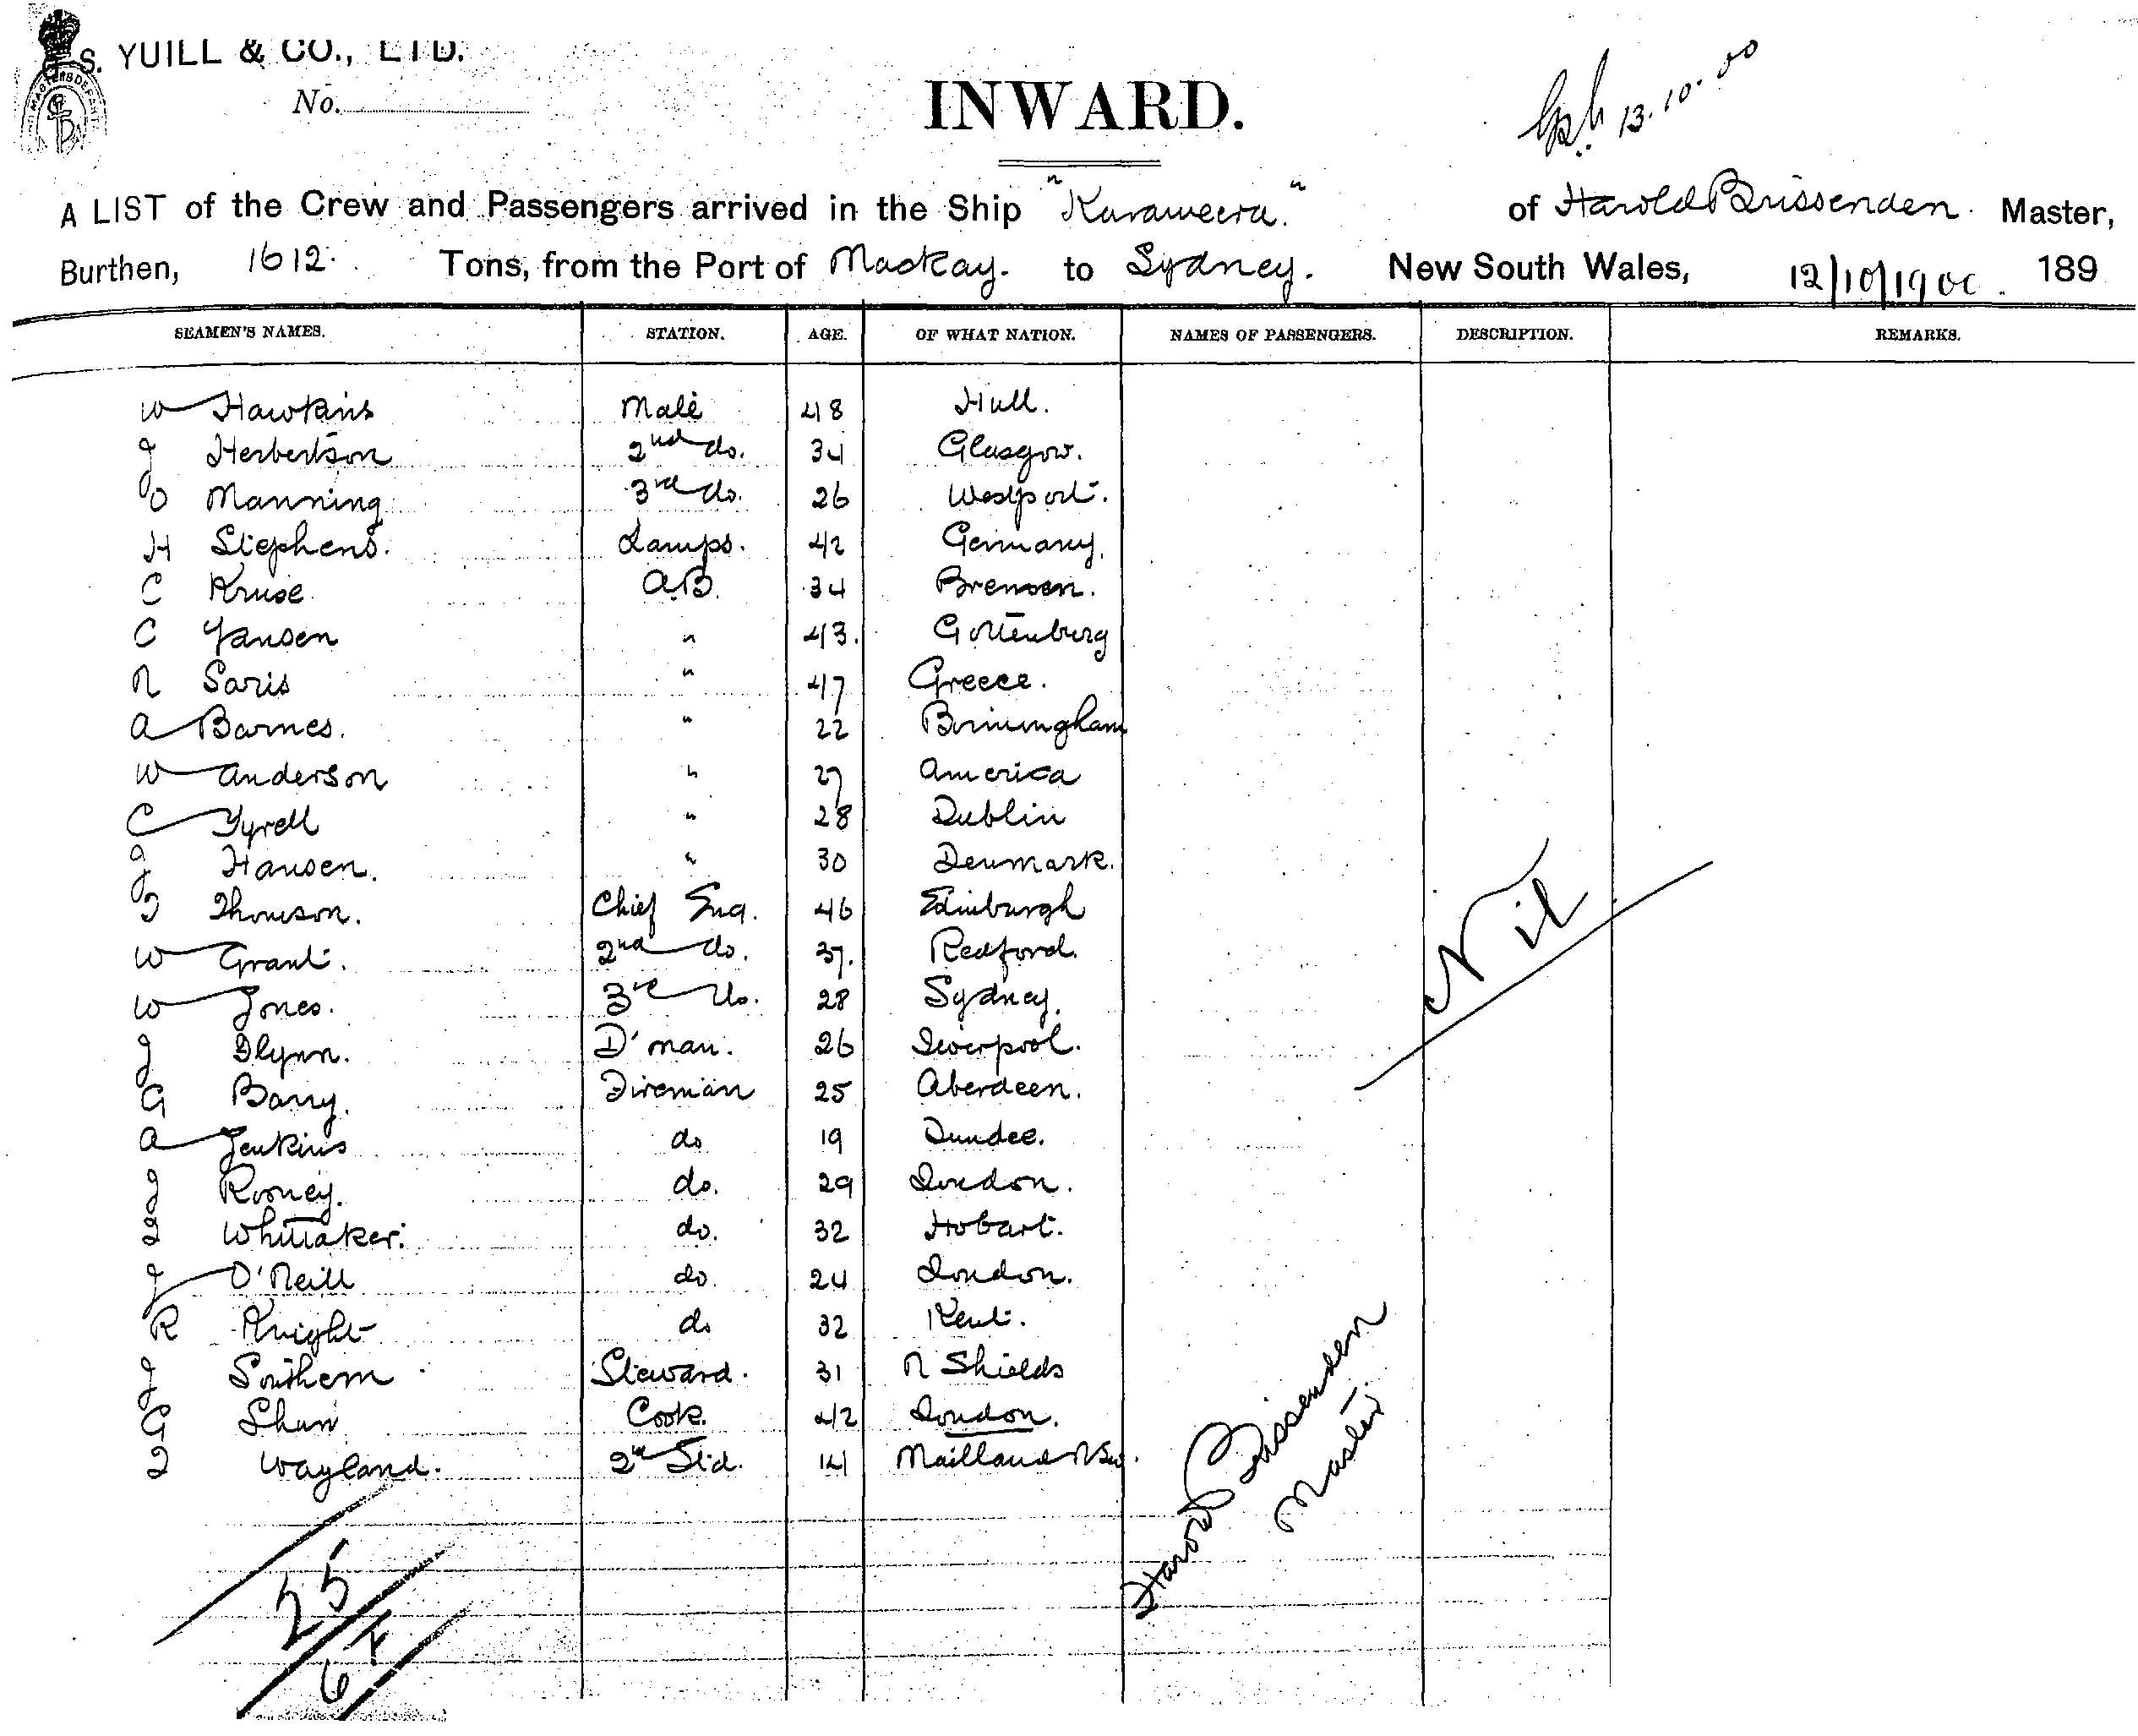 G. S. YUILL & CO., LTD.
No.
INWARD.
13.10.00
A LIST of the Crew and Passengers arrived in the Ship "Karaweera." of Harold Brissenden. Master,
Burthen, 1612. Tons, from the Port of Mackay. to Sydney. New South Wales, 12/10/1900. 189
SEAMEN'S NAMES. STATION. AGE. OF WHAT NATION. NAMES OF PASSENGERS. DESCRIPTION. REMARKS.
W Hawkins Mate 48 Hull.
J Herbertson 2nd do. 34 Glasgow.
O Manning 3rd do. 26 Westport.
H Stephens. Lamps. 42 Germany.
C Kruse A.B. 34 Bremen.
C Jansen " 43. Gottenburg
N Saris " 47 Greece.
A Barnes. " 22 Birmingham
W Anderson " 27 America
C Tyrell " 28 Dublin
J Hansen. " 30 Denmark.
Thomson. Chief Eng. 46 Edinburgh
W Grant. 2nd do. 37. Redford.
W Jones. 3rd do. 28 Sydney.
J Flynn. D'man. 26 Liverpool.
G Barry. Fireman 25 Aberdeen.
A Jenkins do 19 Dundee.
J Rooney. do. 29 London.
Whittaker. do. 32 Hobart.
J O'Neill do. 24 London.
R Knight do 32 Kent.
J Southern Steward. 31 N Shields
G Shaw Cook. 42 London.
Wayland. 2nd Std. 14 Maitland NSW.
Nil
Harold Brissenden
Master
25